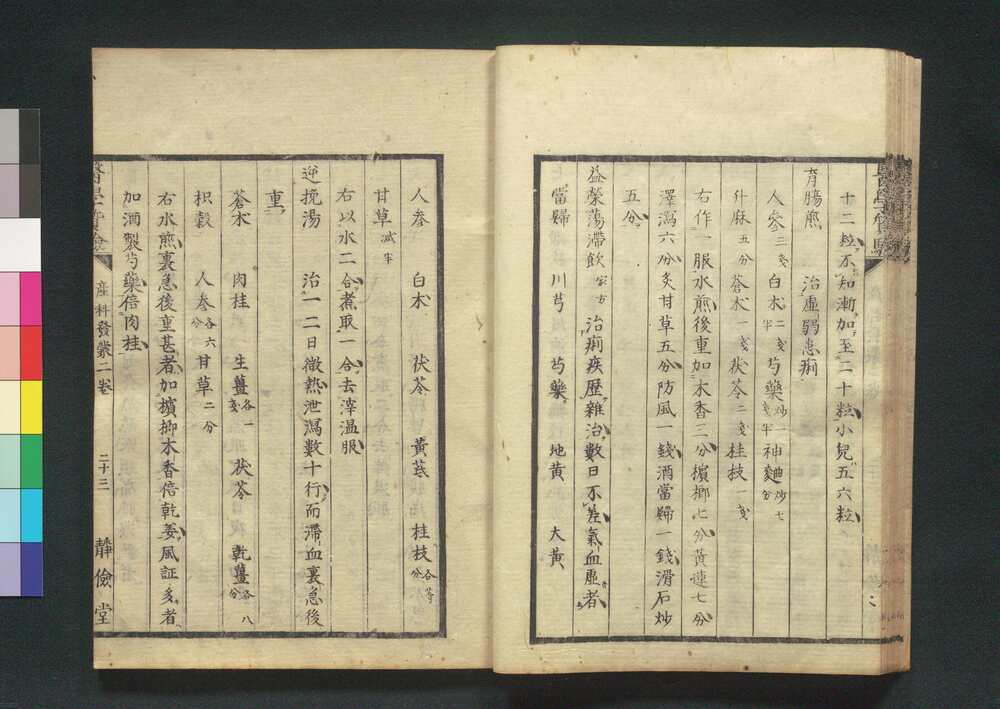 十二粒、不知漸加、至二十粒、小兒五六粒、
育膓煎　治虛弱患痢
人參三戔　白朮二戔半　芍藥炒一戔半　神麯炒七分
升麻五分　蒼朮一戔　茯苓二戔　桂枝一戔
右作一服水煎、後重加木香三分、檳榔七分、黃連七分、
澤瀉六分、炙甘草五分、防風一錢、酒當歸一錢、滑石炒
五分、
益榮蕩滯飲家方　治痢疾歷雜治、數日不差、氣血虛者、
當歸　川芎　芍藥　地黃　大黃
人參　白朮　茯苓　黃芪　桂枝各等分
甘草減半
右以水二合、煮取一合、去滓温服、
逆挽湯　治一二日微熱、泄瀉數十行、而滯血裏急後
重
蒼朮　肉桂　生薑各一戔　茯苓　乾薑各八分
枳穀　人參各六分　甘草二分
右水煎、裏急後重甚者、加檳榔木香、倍乾姜、風証多者、
加酒製芍藥、倍肉桂、
產科發蒙二卷　二十三　靜儉堂